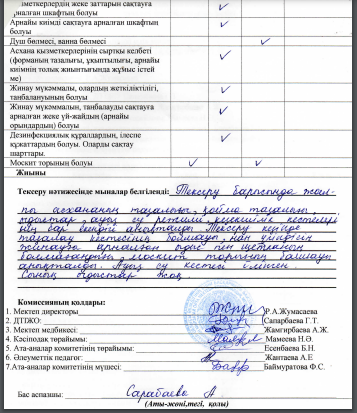 іметкерлердің жеке заттарын сақтауға
арналған шкафтың болуы
Арнайы киімді сақтауға арналған шкафтың
болуы
Душ бөлмесі, ванна бөлмесі
Асхана қызметкерлерінің сыртқы келбеті
(форманың тазалығы, ұқыптылығы, арнайы
киімнің толық жиынтығында жұмыс істей
ме)
Жинау мүкәммалы, олардың жеткіліктілігі,
таңбалануының болуы
Жинау мүкәммалын, таңбалауды сақтауға
арналған жеке үй-жайдың (арнайы
орындардың) болуы
Дезинфекциялық құралдардың, ілеспе
құжаттардың болуы. Оларды сақтау
шарттары.
Москит торының болуы
Жиыны
Тексеру нәтижесінде мыналар белгіленді: Тексеру барысында жал-
пы асхананың тазалығы, қойма тазалығы,
ауыз су режимі, кестелері
бар екендігі анықталды. Тексеру кезінде
тазалау кестесінің болмауы, нан
жинауға арналған пен щетканың
москит торының болмауы
анықталды. Ауыз су кестесі ілінген.
жоқ.
Комиссияның қолдары:
1. Мектеп директоры Р.А.Жумасаева
2. ДТІЖО: Сапарбаева Г.Т.
3. Мектеп медбикесі: Жамгирбаева А.Ж.
4. Кәсіподақ төрайымы: Мамеева Н.Ә.
5. Ата-аналар комитетінің төрайымы: Есенбаева Б.Н.
6. Әлеуметтік педагог: Жантаева А.Е
7.Ата-аналар комитетінің мүшесі: Баймуратова Ф.С.
Бас аспазшы: Сарабаева А
(Аты-жөні,тегі, қолы)